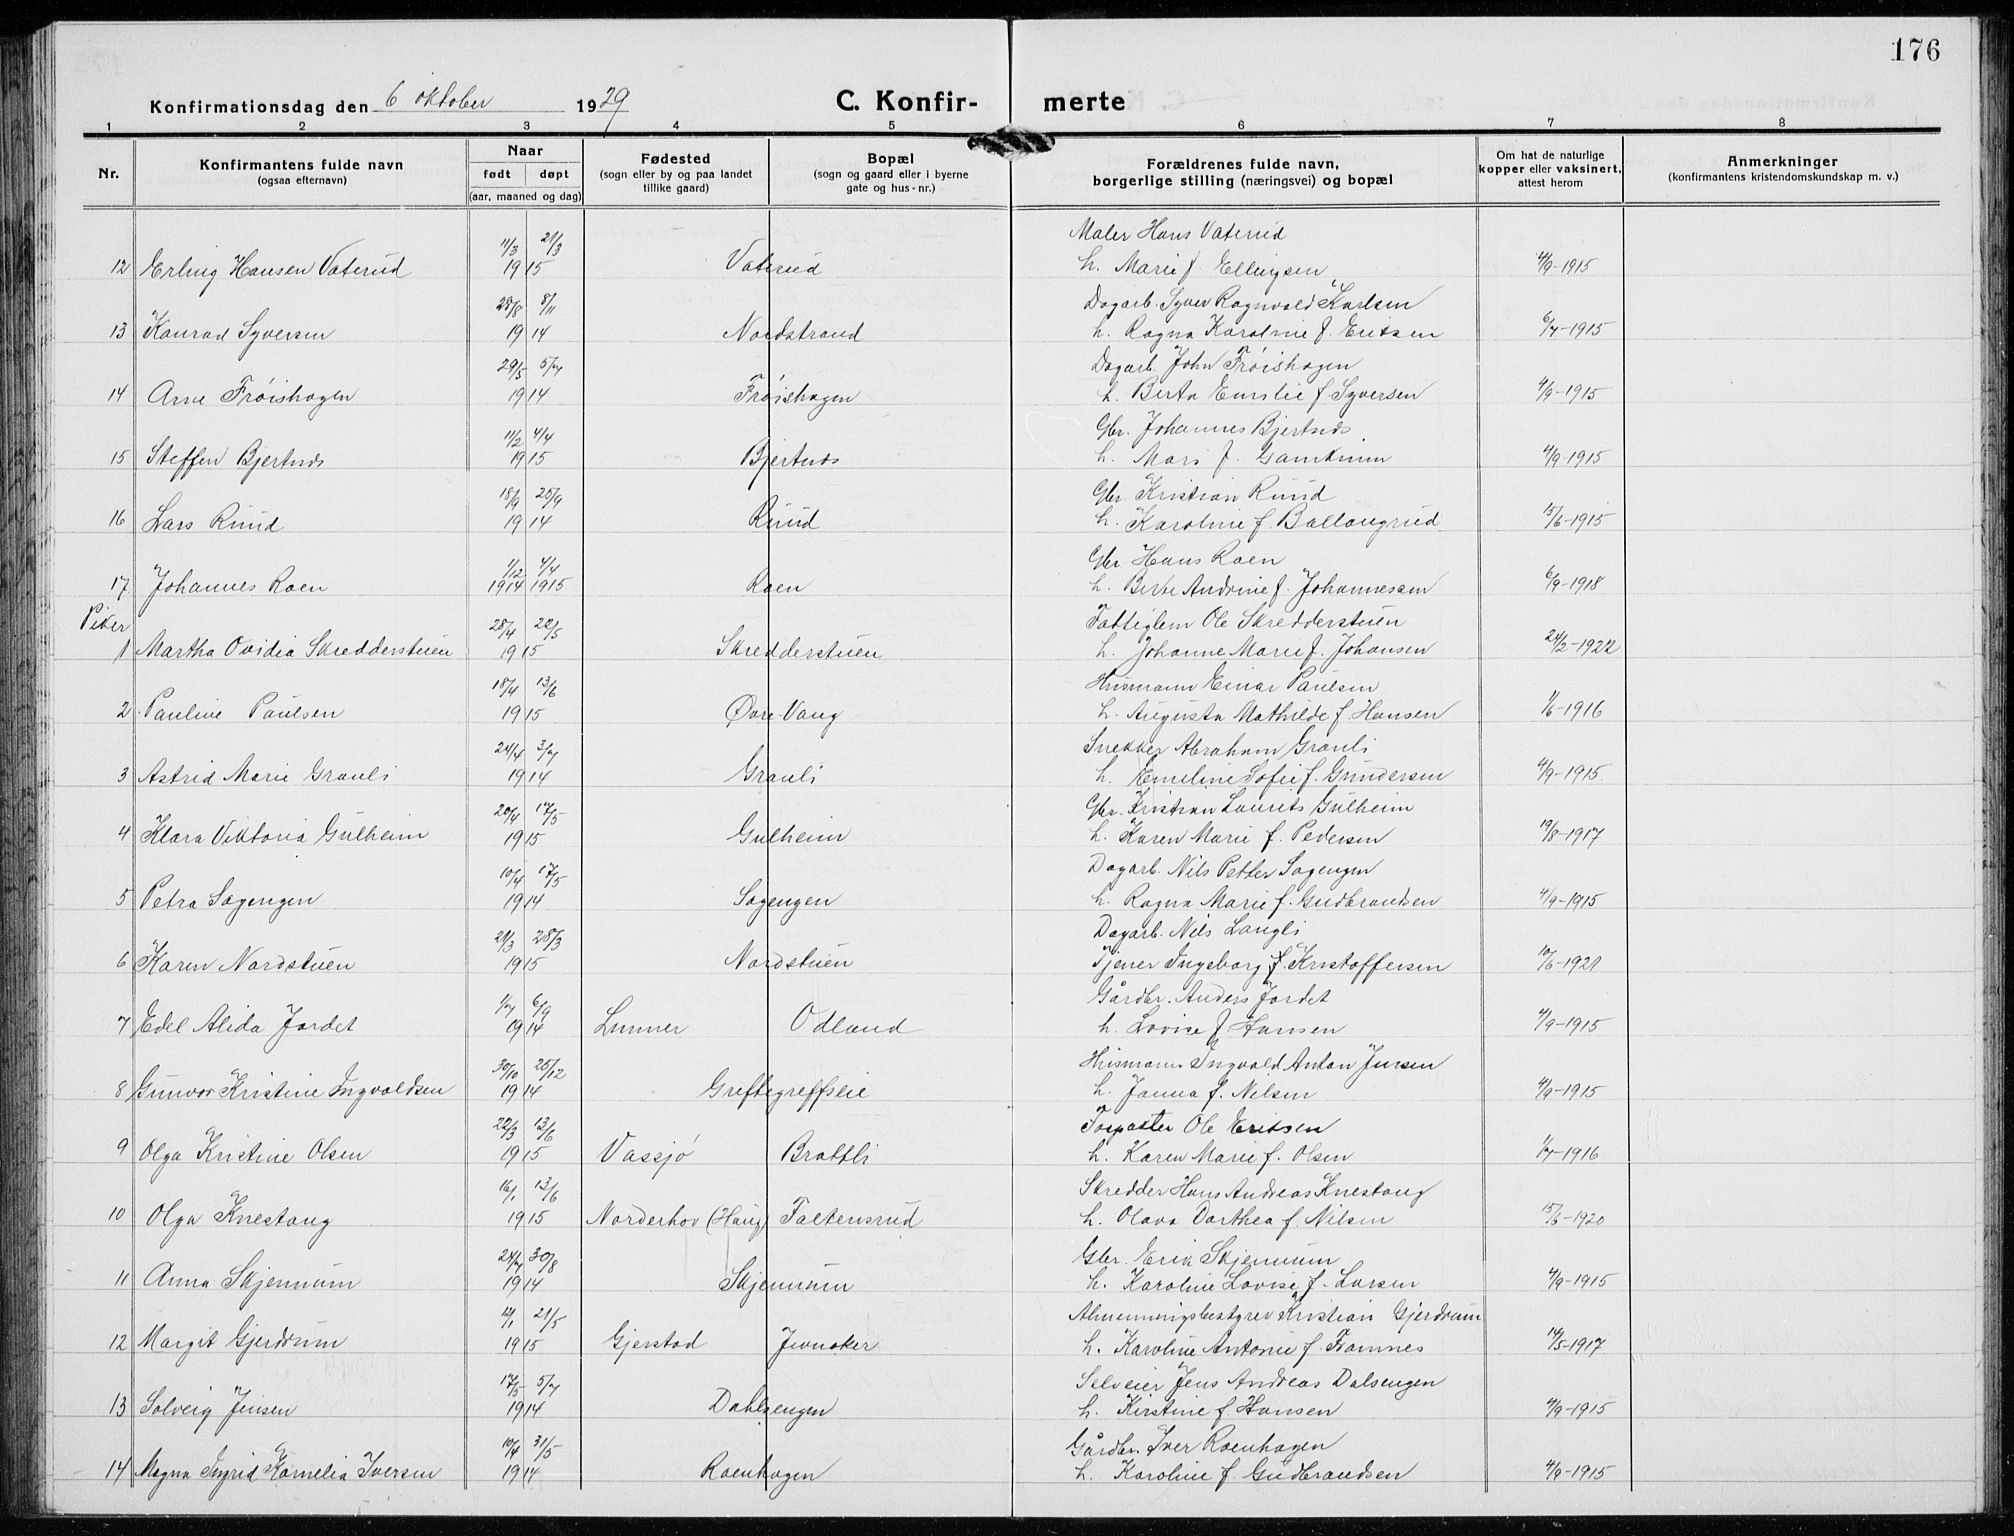 176
Konfirmationsdag den 6 oktober 1929 C. Konfir- merte
1 2 3 4 5 6 7 8
Nr. Konfirmantens fulde navn (ogsaa efternavn) Naar født døpt (aar, maaned og dag) Fødested (sogn eller by og paa landet tillike gaard) Bopæl (sogn og gaard eller i byerne gate og hus-nr.) Forældrenes fulde navn, borgerlige stilling (næringsvei) og bopæl Om hat de naturlige kopper eller vaksinert, attest herom Anmerkninger (konfirmantens kristendomskundskap m. v.)
11/3 21/3 Maler Hans Vaterud
12 Erling Hansen Vaterud 1915 Vaterud h. Marie f. Ellingsen 4/9-1915
28/8 8/11 Dagarb. Syver Ragnvald Karlsen
13 Konrad Syversen 1914 Nordstrand h. Ragna Karoline f. Eriksen 6/7-1915
29/5 5/7 Dagarb. John Frøishagen
14 Arne Frøishagen 1914 Frøishagen h. Berta Emilie f. Syversen 4/9-1915
11/2 4/4 Gbr. Johannes Bjertnæs
15 Steffen Bjertnæs 1915 Bjertnæs h. Mari f. Gamkinn 4/9-1915
18/9 25/9 Gbr. Kristian Ruud
16 Lars Ruud 1914 Ruud h. Karoline f. Ballangrud 15/6-1915
1/12 4/4 Gbr. Hans Roen
17 Johannes Roen 1914 1915 Roen h. Berte Andrine f. Johannessen 6/9-1918
Piker 28/4 22/5 Fattiglem Ole Skredderstuen
1 Martha Ovidia Skredderstuen 1915 Skredderstuen h. Johanne Marie f. Johansen 24/2-1922
18/4 13/6 Husmann Einar Paulsen
2 Pauline Paulsen 1915 Øvre-Vang h. Augusta Mathilde f. Hansen 1/6-1916
24/4 3/7 Snekker Abraham Granli
3 Astrid Marie Granli 1914 Granli h. Emeline Sofie f. Gundersen 4/9-1915
20/4 17/5 Gbr. Kristian Laurits Gulheim
4 Klara Viktoria Gulheim 1915 Gulheim h. Karen Marie f. Pedersen 19/8-1917
10/4 17/5 Dagarb. Nils Petter Sagengen
5 Petra Sagengen 1914 Sagengen h. Ragna Marie f. Gudbrandsen 4/9-1915
21/3 28/3 Dagarb. Nils Langli
6 Karen Nordstuen 1915 Nordstuen Tjener Ingeborg f. Kristoffersen 10/6-1921
1/7 6/9 Gårdbr. Anders Jordet
7 Edel Alida Jordet 1914 Lunner Odland h. Lovise f. Hansen 4/9-1915
30/10 25/12 Husmann Ingvald Anton Jensen
8 Gunvor Kristine Ingvaldsen 1914 Greftegreffseie h. Janna f. Nelsen 4/9-1915
22/3 13/6 Forpakter Ole Eriksen
9 Olga Kristine Olsen 1915 Vassjø Brattli h. Karen Marie f. Olsen 1/7-1916
16/1 13/6 Skredder Hans Andreas Knestang
10 Olga Knestang 1915 Norderhov (Haug) Faltensrud h. Olava Dorthea f. Nilsen 15/6-1920
24/7 30/8 Gbr. Erik Skjennum
11 Anna Skjennum 1914 Skjennum h. Karoline Lovise f. Larsen 4/9-1915
12/1 21/5 Almenningsbestyrer Kristian Gjerdrum
12 Margit Gjerdrum 1915 Gjerstad Jevnaker h. Karoline Antonie f. Framnes 14/5-1917
17/5 5/7 Selveier Jens Andreas Dalsengen
13 Solveig Jensen 1914 Dahlsengen h. Kirstine f. Hansen 4/9-1915
10/4 31/5 Gårdbr. Iver Roenhagen
14 Magna Ingrid Kornelia Iversen 1914 Roenhagen h. Karoline f. Gudbrandsen 4/9-1915